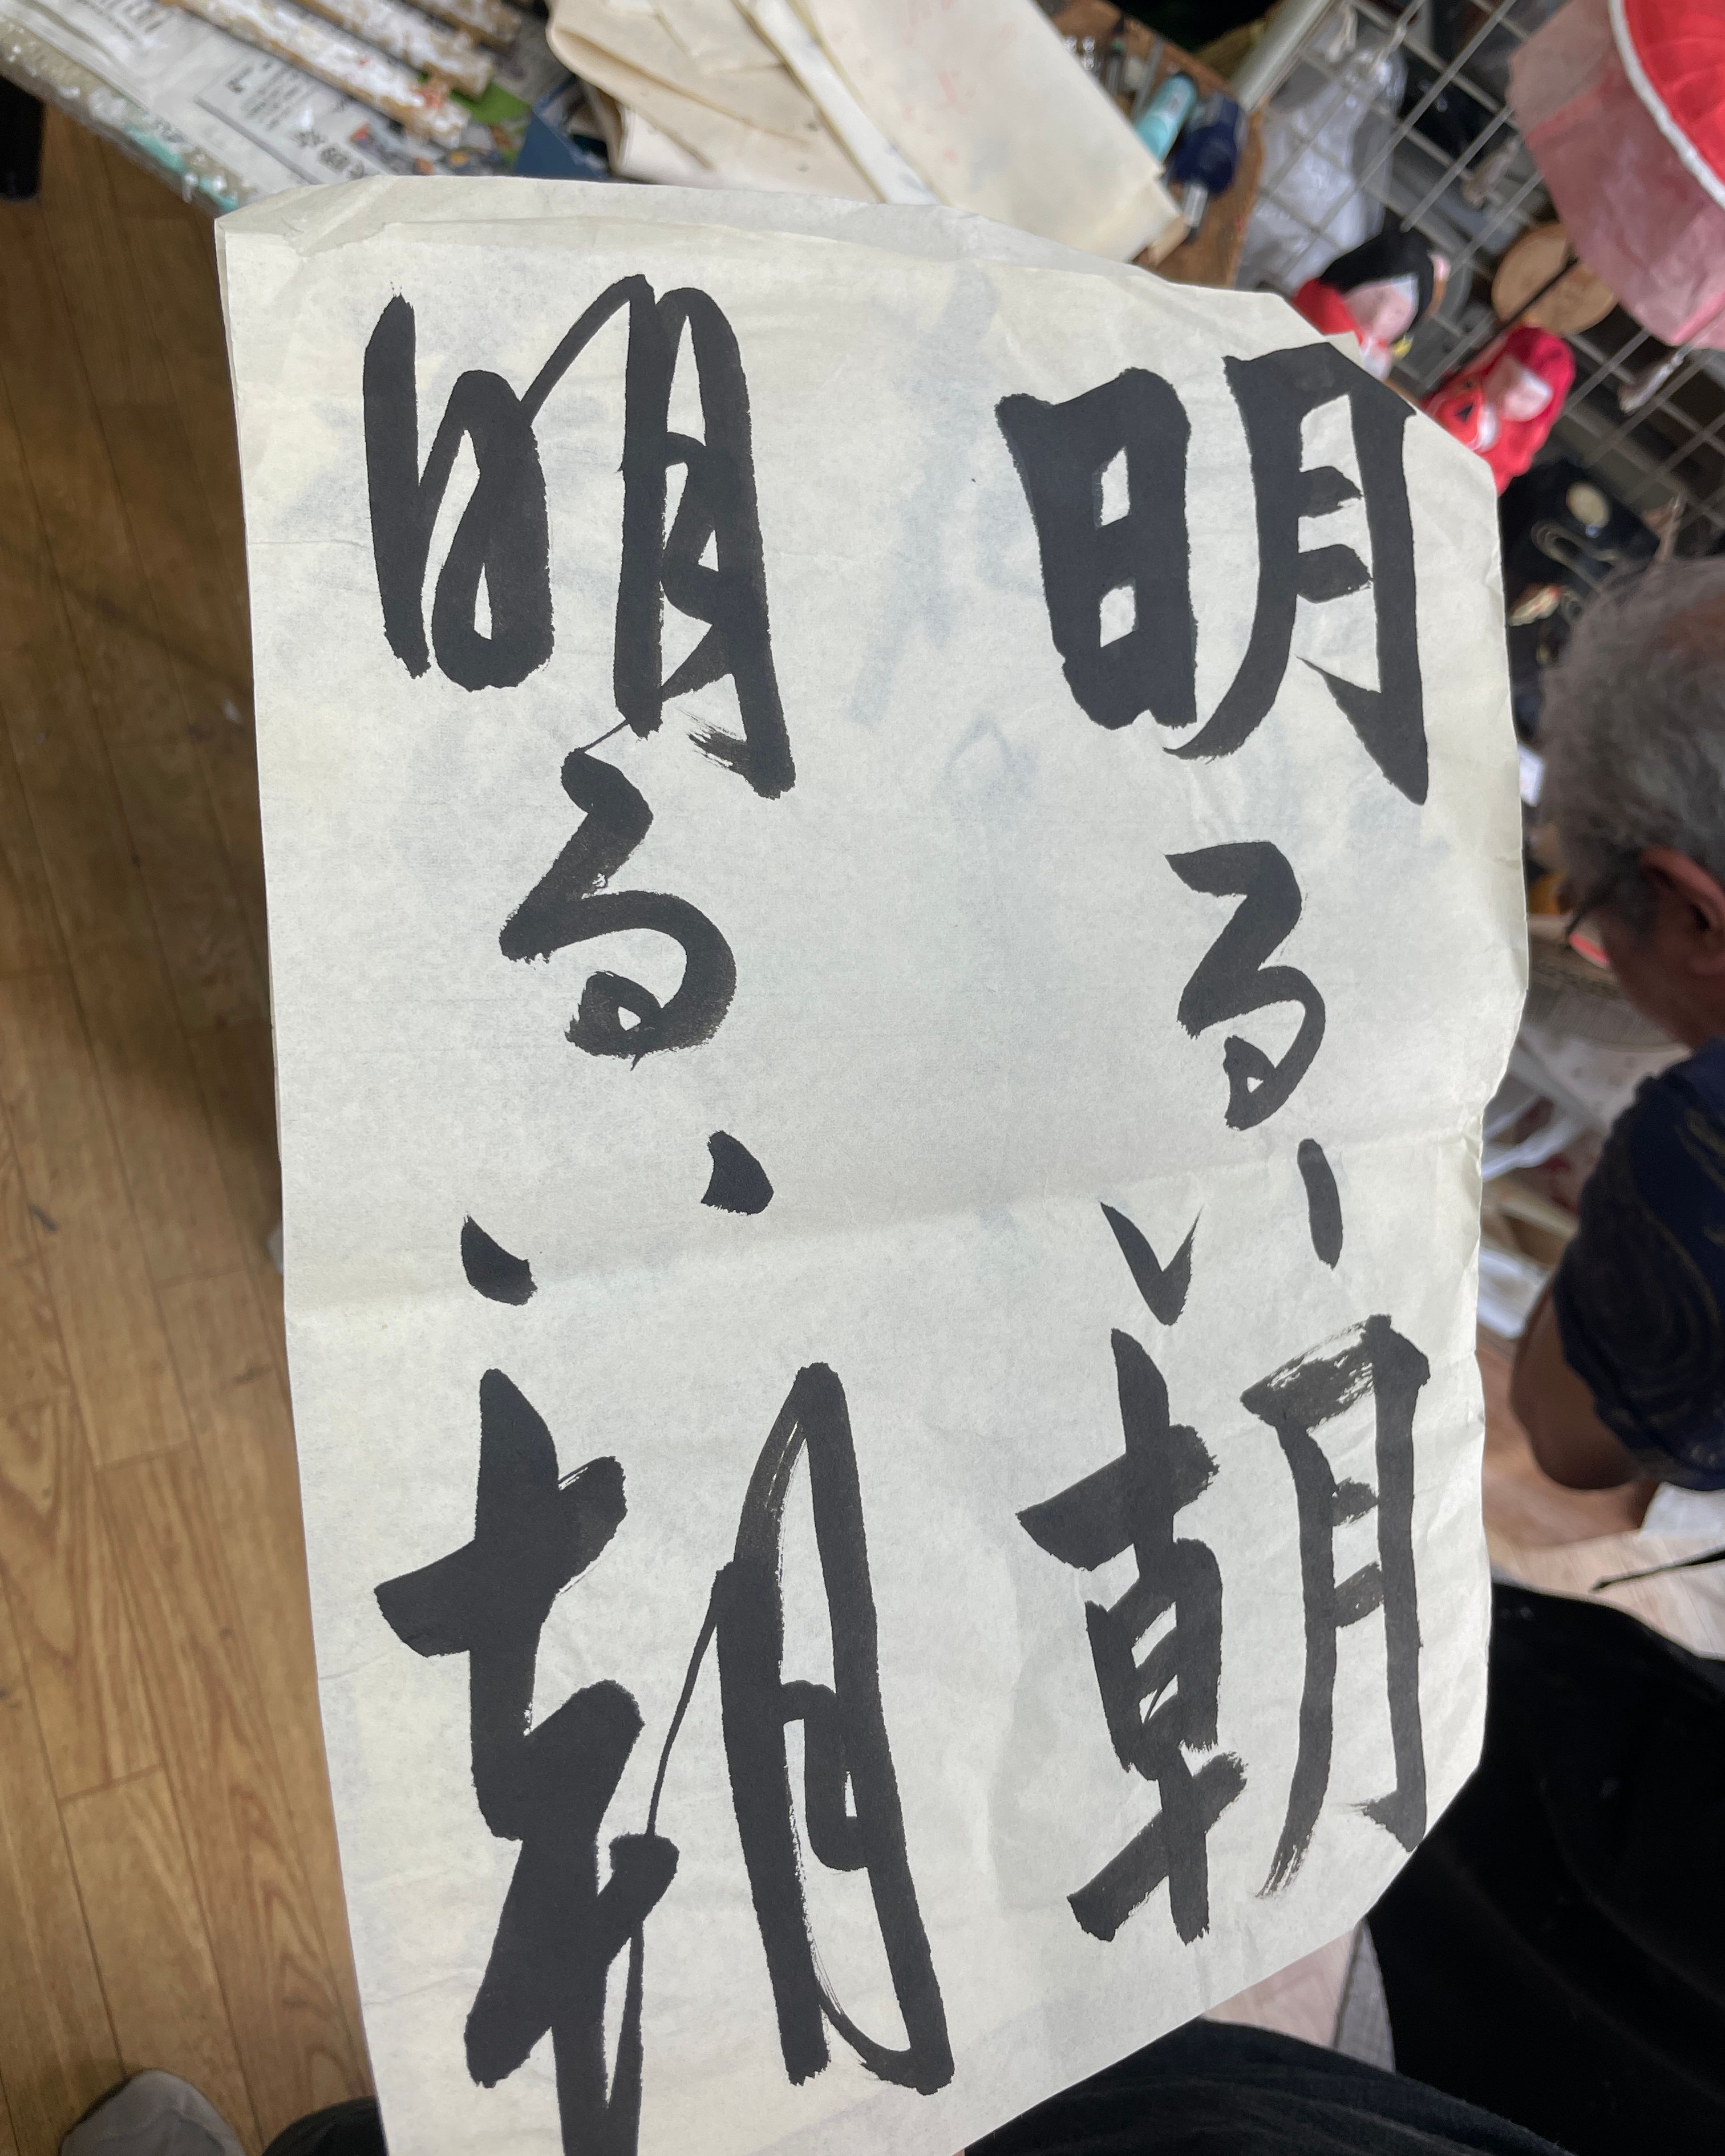 明るい朝
明るい朝